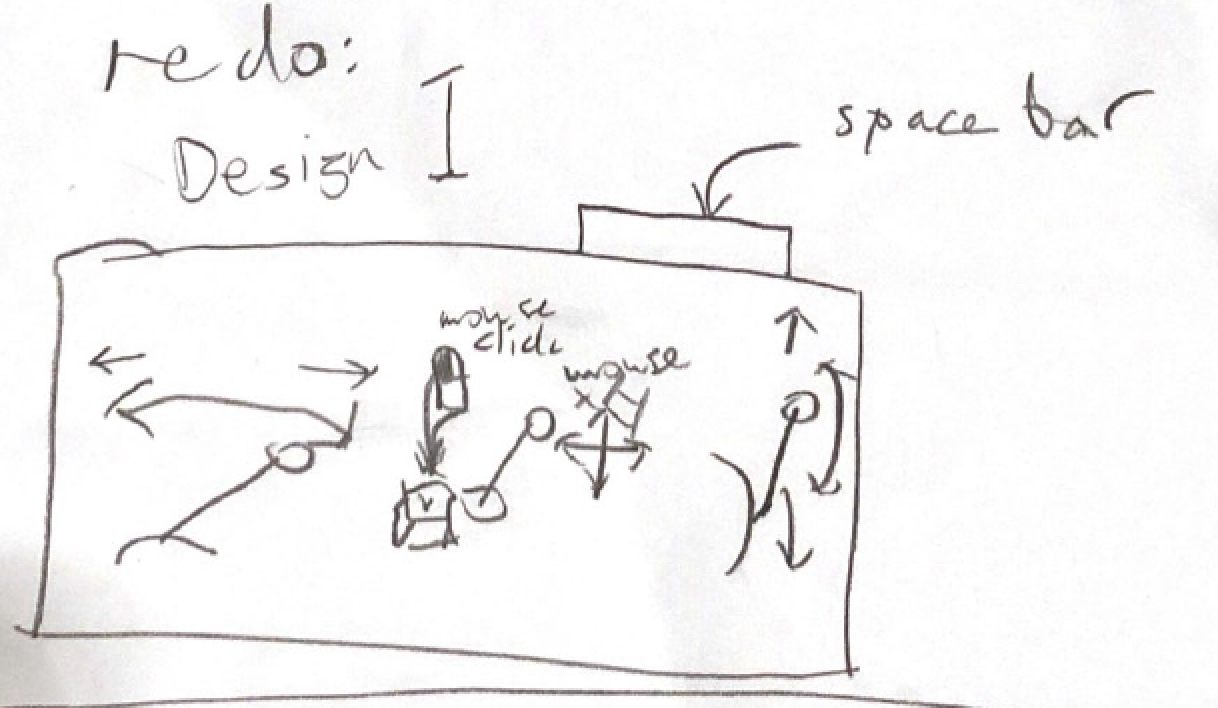 redo:
Design I
space bar
mouse
click
mouse